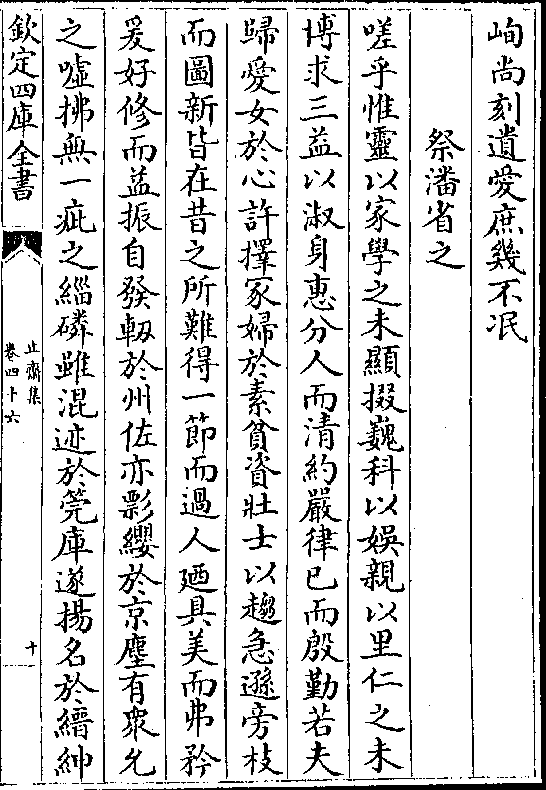 峋尚刻遺愛庶幾不泯
祭潘省之
嗟乎惟靈以家學之未顯掇巍科以娛親以里仁之未
博求三益以淑身惠分人而清約嚴律已而殷勤若夫
歸愛女於心許擇冢婦於素貧資壯士以趨急遜旁枝
而圖新皆在昔之所難得一節而過人廼具美而弗矜
爰好修而益振自發軔於州佐亦彯纓於京塵有衆允
之噓拂無一疵之緇磷雖混迹於筦庫遂揚名於縉紳
欽定四庫全書
止齋集
卷四十六
十